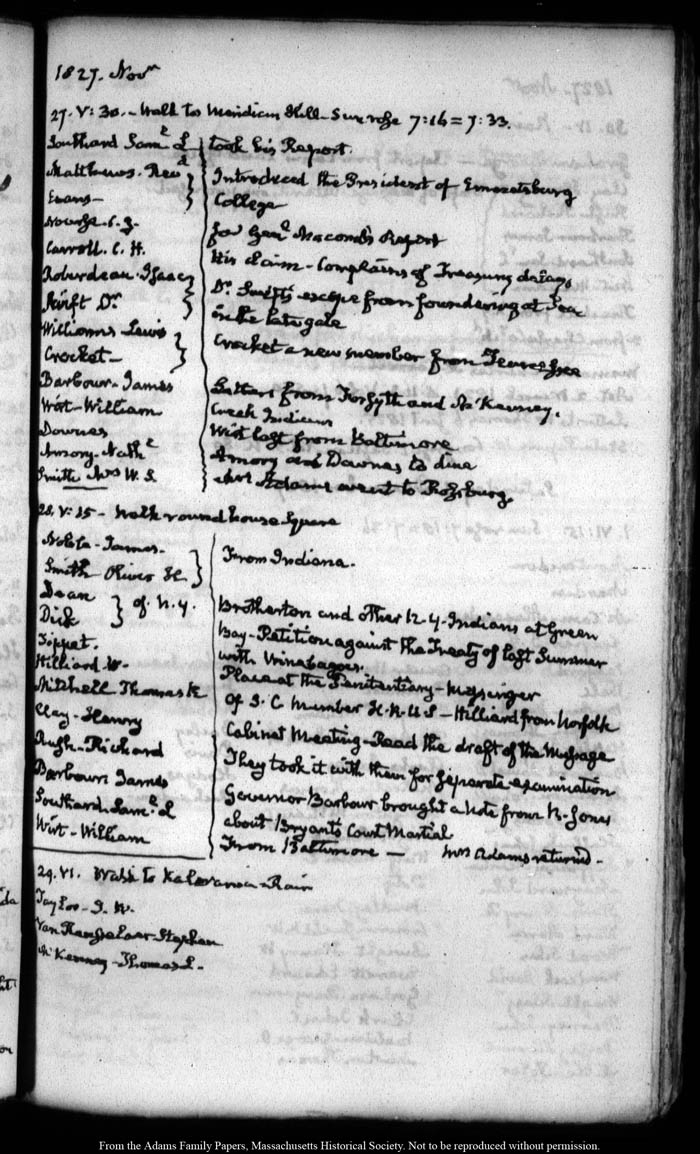 1827. Novr
27. V: 30. - Walk to Meridian Hill - Sun rose 7:16 = 7:33.
Southard Saml. L took his Report.
Matthews. Revd Introduced the President of Emmetsburg
Evans - College
Nourse. C. J. for Genl. Macomb's Report
Carroll. C. H. His claim - Complains of Treasury delays
Roberdeau. Isaac Dr. Swift's escape from foundering at Sea
Swift Dr. in the late gale
Williams Lewis
Crocket - Crocket a new member from Tennessee
Barbour - James Letters from Forsyth and McKenney.
Wirt - William Creek Indians
Downes Wirt last from Baltimore
Amory - Nathl Amory and Downes to dine
Smith Mrs W. S. Mrs Adams went to Rossburg.
28. V: 25 - Walk round house Square
Noble - James.
Smith Oliver H. From Indiana.
Dean
Dick of N. Y. Brotherton and other N-Y-Indians at Green
Tippet. Bay - Petition against the Treaty of last Summer
Hilliard W. with Winebagoes.
Mitchell Thomas R Place at the Penitentiary - Messenger
Clay - Henry of S. C Member H. R. U S - Hilliard from Norfolk
Rush - Richard Cabinet Meeting - Read the draft of the Message
Barbour James They took it with them for separate examination
Southard Saml. L Governor Barbour brought a note from R - Jones
Wirt - William about Bryant's Court Martial
From Baltimore - Mrs Adams returned -
29. VI. Walk to Kalorama - Rain
Tayloe - J. W.
Van Rensselaer Stephen
McKenney - Thomas L.
From the Adams Family Papers, Massachusetts Historical Society. Not to be reproduced without permission.